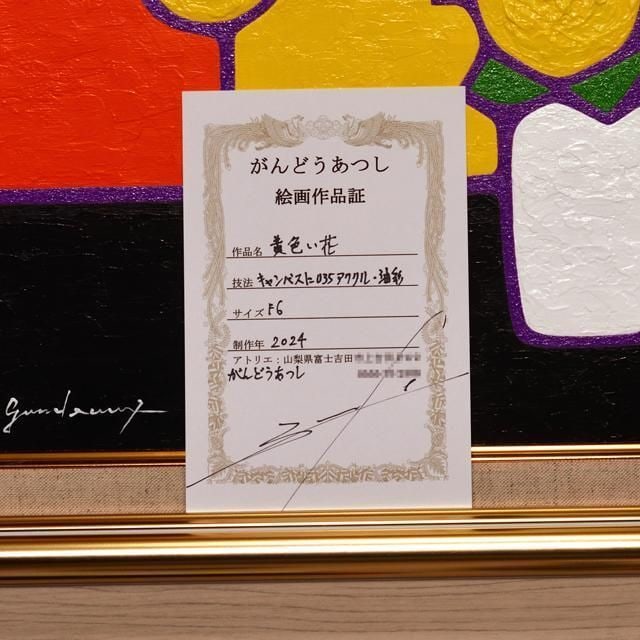 がんどうあつし
絵画作品証
作品名 黄色い花
技法 キャンバスに035アクリル・油彩
サイズ F6
制作年 2024
アトリエ:山梨県富士吉田
がんどうあつし